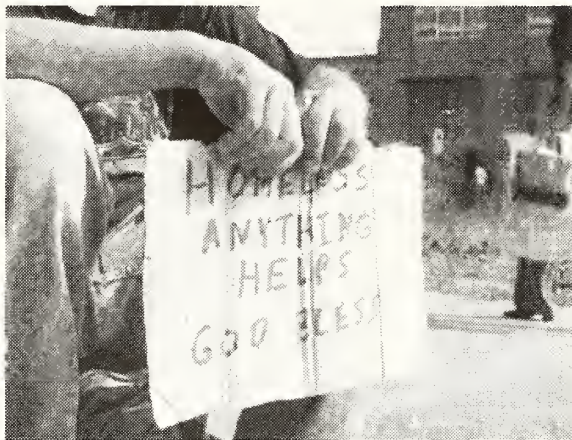 HOMELESS
ANYTHING
HELPS
GOD BLESS